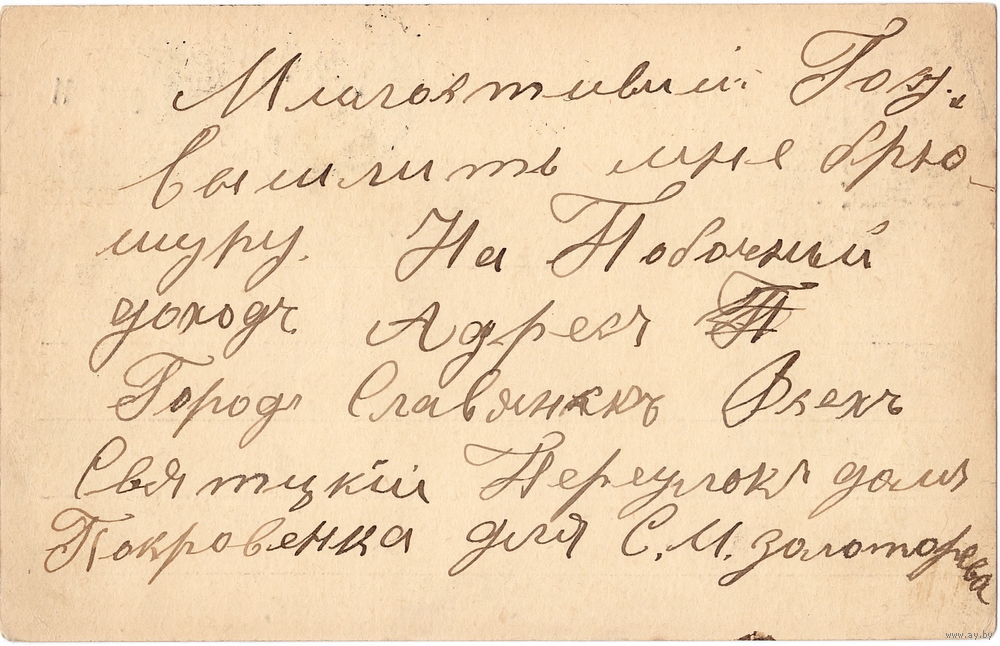 Милостивий Гос.
вышлить мне брю-
шуру. На Побочный
доходъ Адресъ
Городъ Славянскъ Всехъ
Святцкій Переулокъ домъ
Покровенка для С.М. Золоторева
www.ay.by